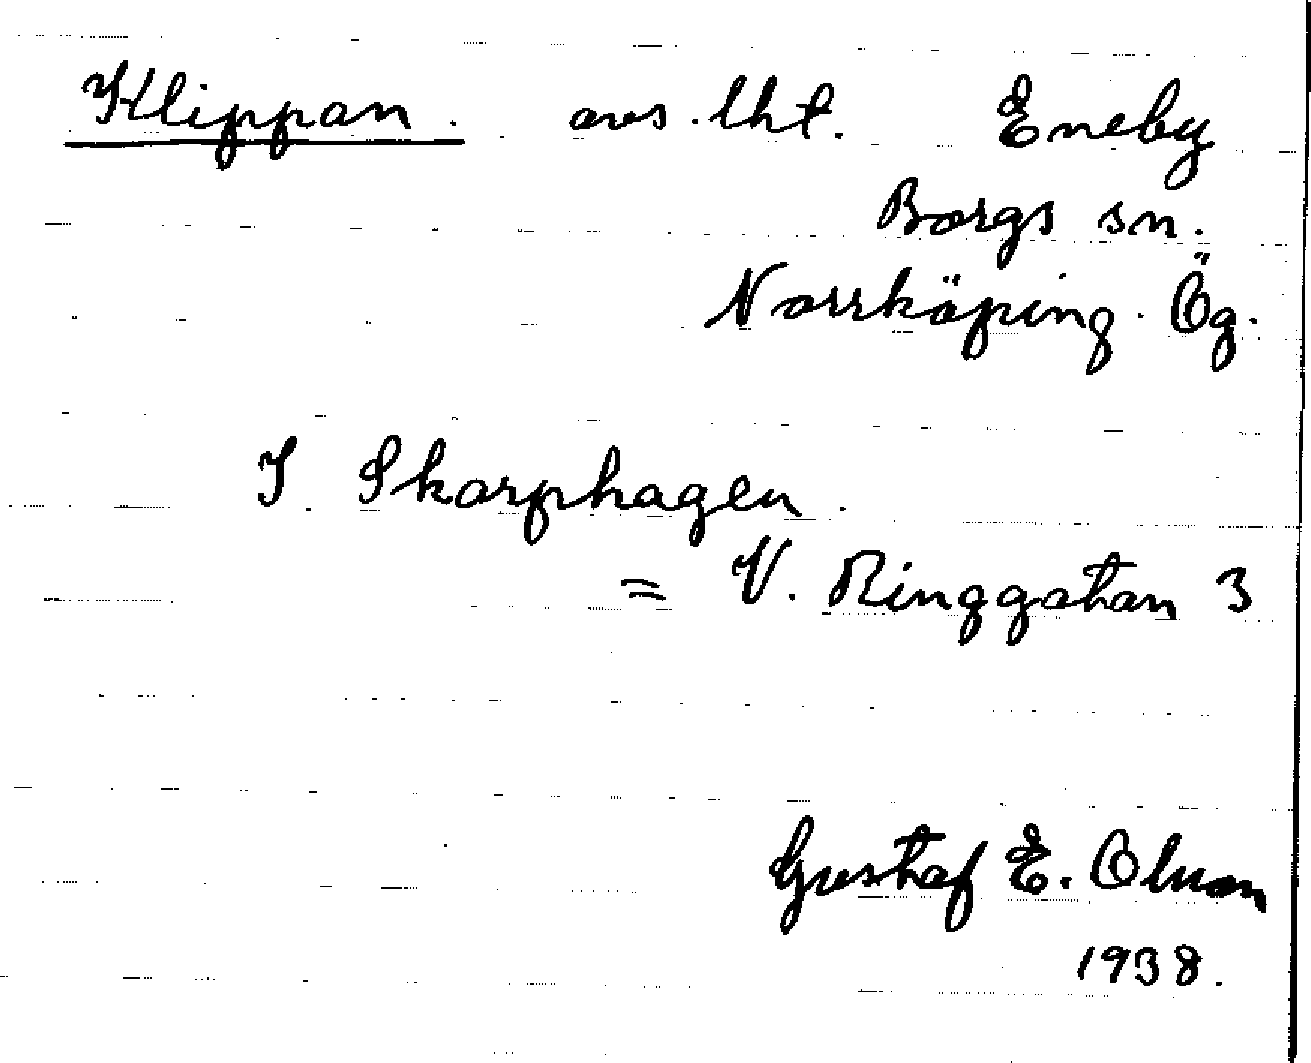 Klippan. avs. lht. Eneby
Borgs sn.
Norrköping. Ög.
I Skarphagen.
= V. Ringgatan 3
Gustaf E. Olson
1938.